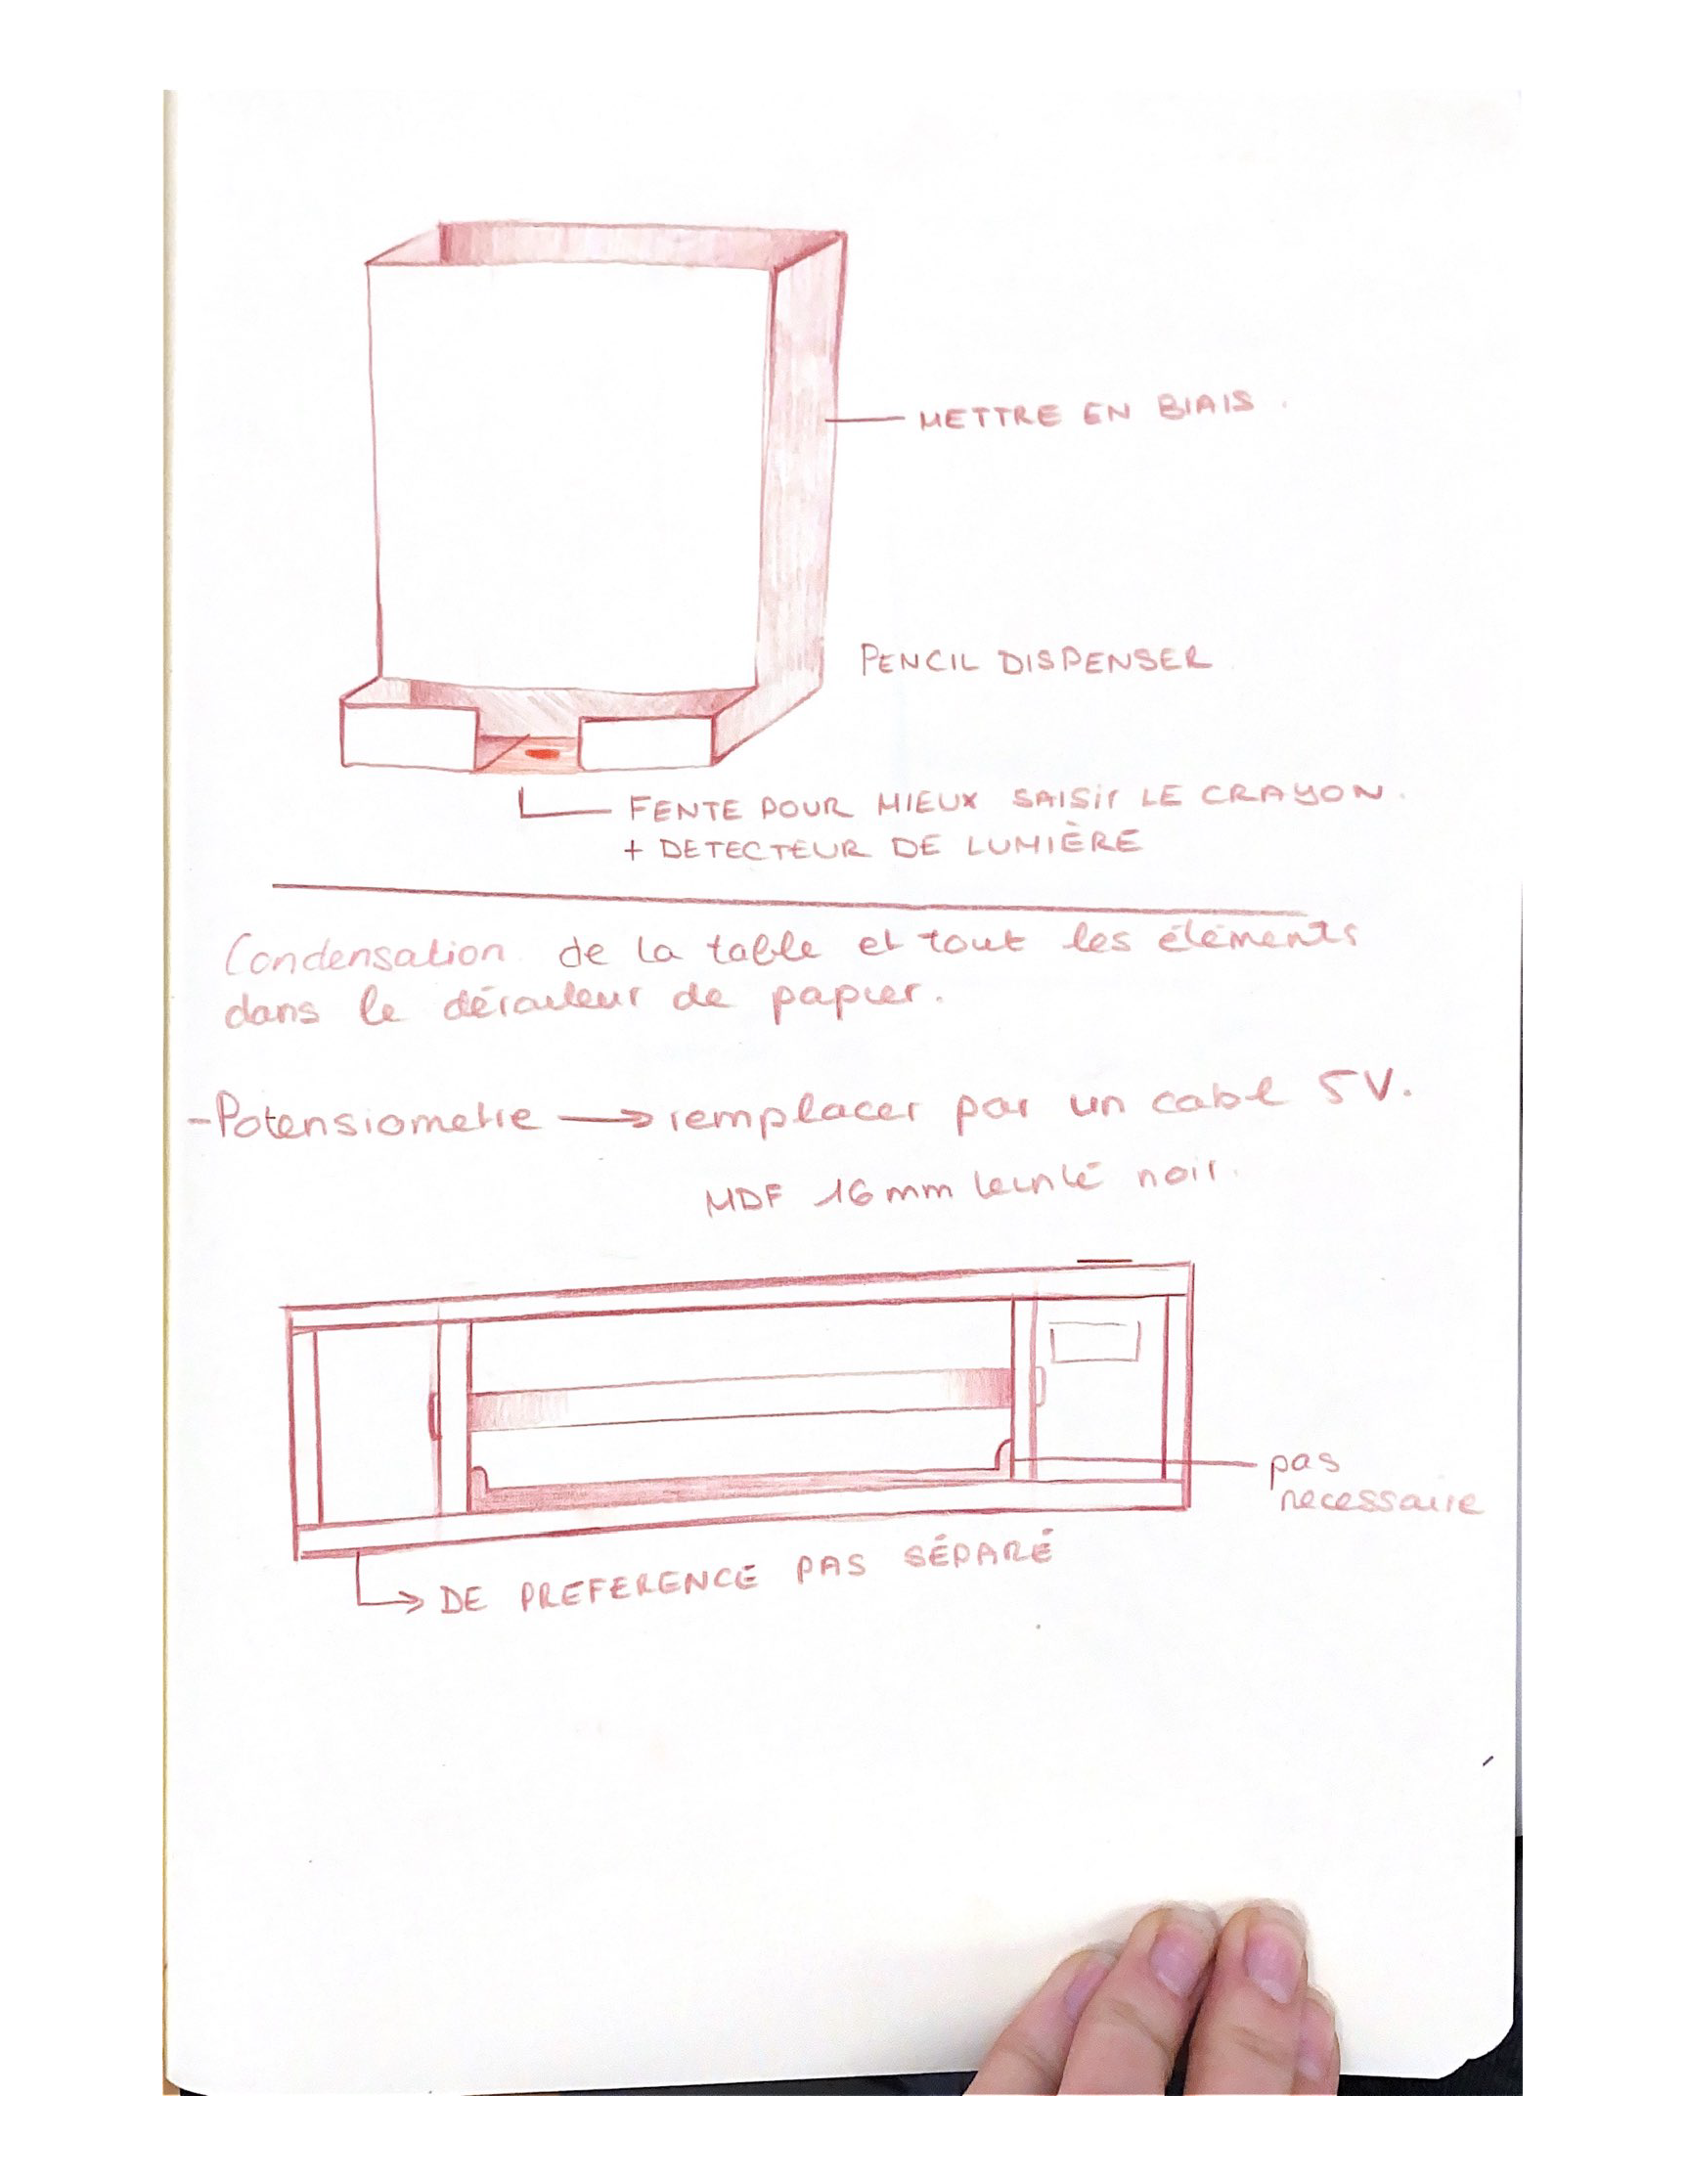 METTRE EN BIAIS.
PENCIL DISPENSER
FENTE POUR MIEUX SAISIR LE CRAYON.
+ DETECTEUR DE LUMIÈRE
Condensation de la table et tout les éléments
dans le dérouleur de papier.
-Potensiometre → remplacer par un cable 5V.
MDF 16mm teinté noir.
pas
necessaire
DE PREFERENCE PAS SÉPARÉ